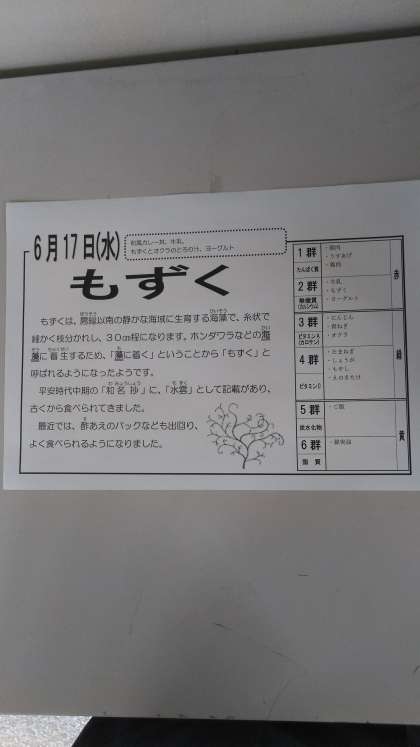 6月17日(水)
和風カレー丼、牛乳、
もずくとオクラのとろり汁、ヨーグルト
もずく
もずくは、房総以南の静かな海域に生育する海藻で、糸状で
細かく枝分かれし、30cm程になります。ホンダワラなどの海
藻に着生するため、「藻に着く」ということから「もずく」と
呼ばれるようになったようです。
平安時代中期の「和名抄」に、「水雲」として記載があり、
古くから食べられてきました。
最近では、酢あえのパックなども出回り、
よく食べられるようになりました。
1群
たんぱく質
・豚肉
・うすあげ
・鶏肉
2群
無機質
(カルシウム)
・牛乳
・もずく
・ヨーグルト
赤
3群
ビタミンA
(カロテン)
・にんじん
・青ねぎ
・オクラ
4群
ビタミンC
・たまねぎ
・しょうが
・もやし
・えのきたけ
緑
5群
炭水化物
・ご飯
6群
脂質
黄